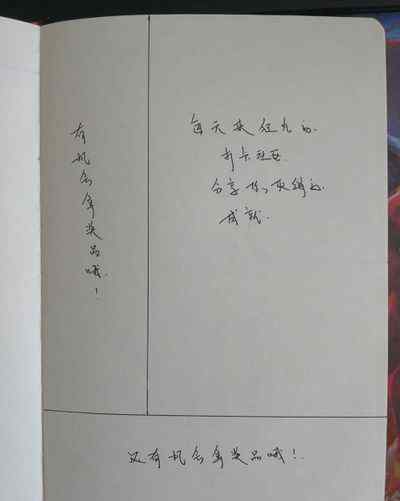 有机会拿奖品哦！
每天来征九的
打卡社区
分享你の夹缝的
成就.
还有机会拿奖品哦！